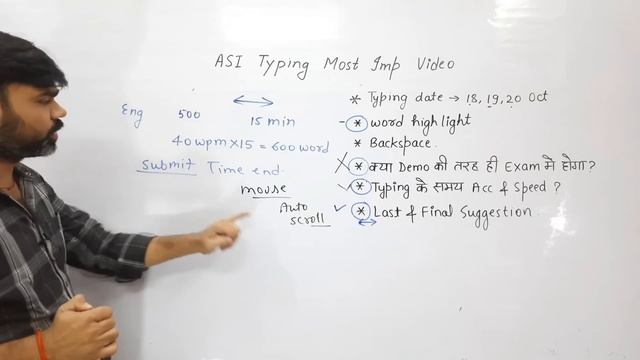 ASI Typing Most Imp Video
Eng 500 15 min
40 wpm x 15 = 600 word
Submit Time end.
mouse
Auto
scroll
* Typing date → 18, 19, 20 Oct
* word highlight
* Backspace.
* क्या Demo की तरह ही Exam मे होगा?
* Typing के समय Acc & Speed?
* Last & Final Suggestion